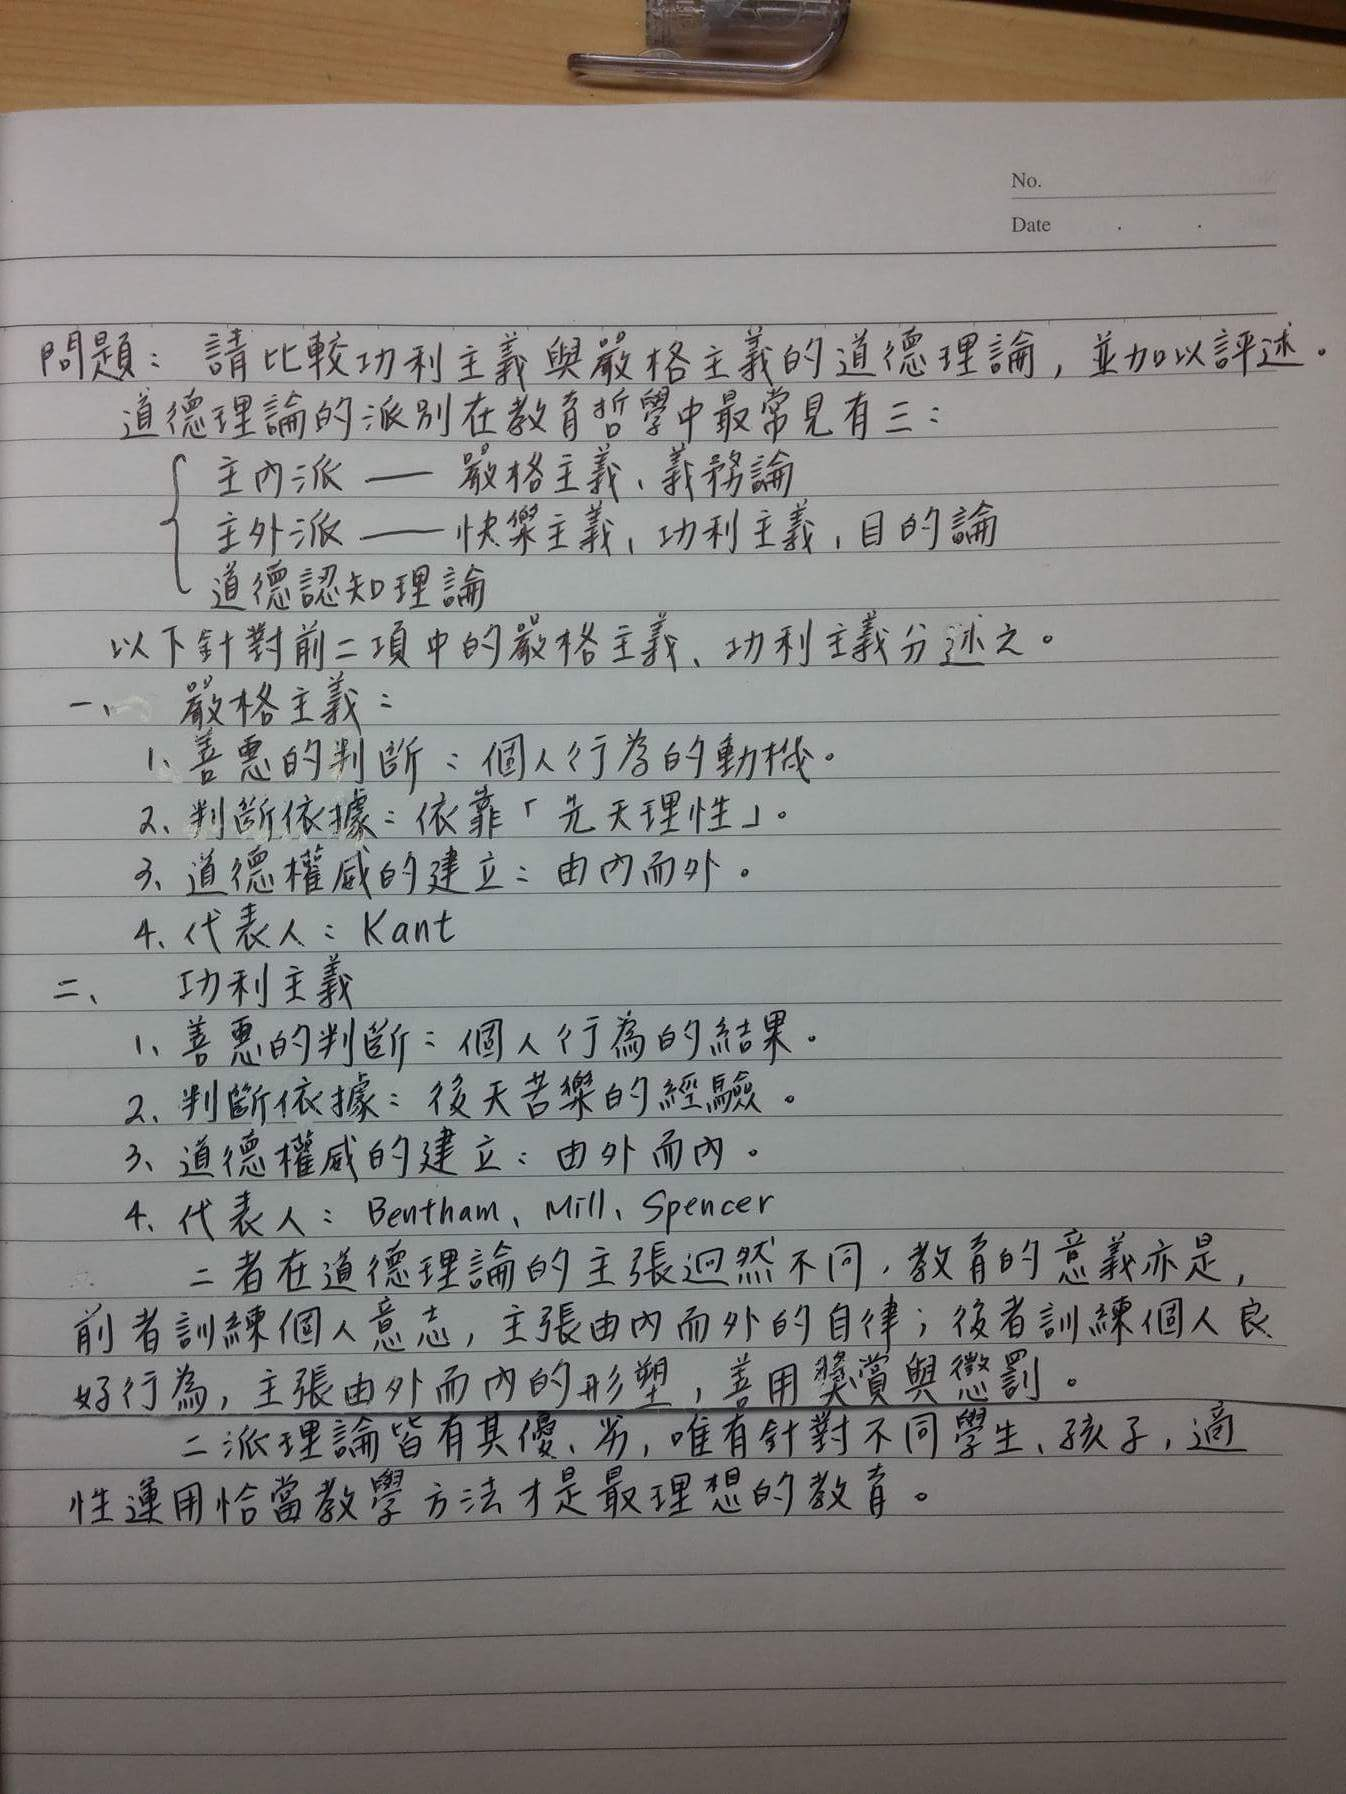 No.
Date
問題：請比較功利主義與嚴格主義的道德理論，並加以評述。
道德理論的派別在教育哲學中最常見有三：
主內派 — 嚴格主義、義務論
主外派 — 快樂主義、功利主義、目的論
道德認知理論
以下針對前二項中的嚴格主義、功利主義分述之。
一、 嚴格主義：
1、善惡的判斷：個人行為的動機。
2、判斷依據：依靠「先天理性」。
3、道德權威的建立：由內而外。
4、代表人：Kant
二、 功利主義
1、善惡的判斷：個人行為的結果。
2、判斷依據：後天苦樂的經驗。
3、道德權威的建立：由外而內。
4、代表人：Bentham、Mill、Spencer
二者在道德理論的主張迥然不同，教育的意義亦是，
前者訓練個人意志，主張由內而外的自律；後者訓練個人良
好行為，主張由外而內的形塑，善用獎賞與懲罰。
二派理論皆有其優、劣，唯有針對不同學生、孩子，適
性運用恰當教學方法才是最理想的教育。